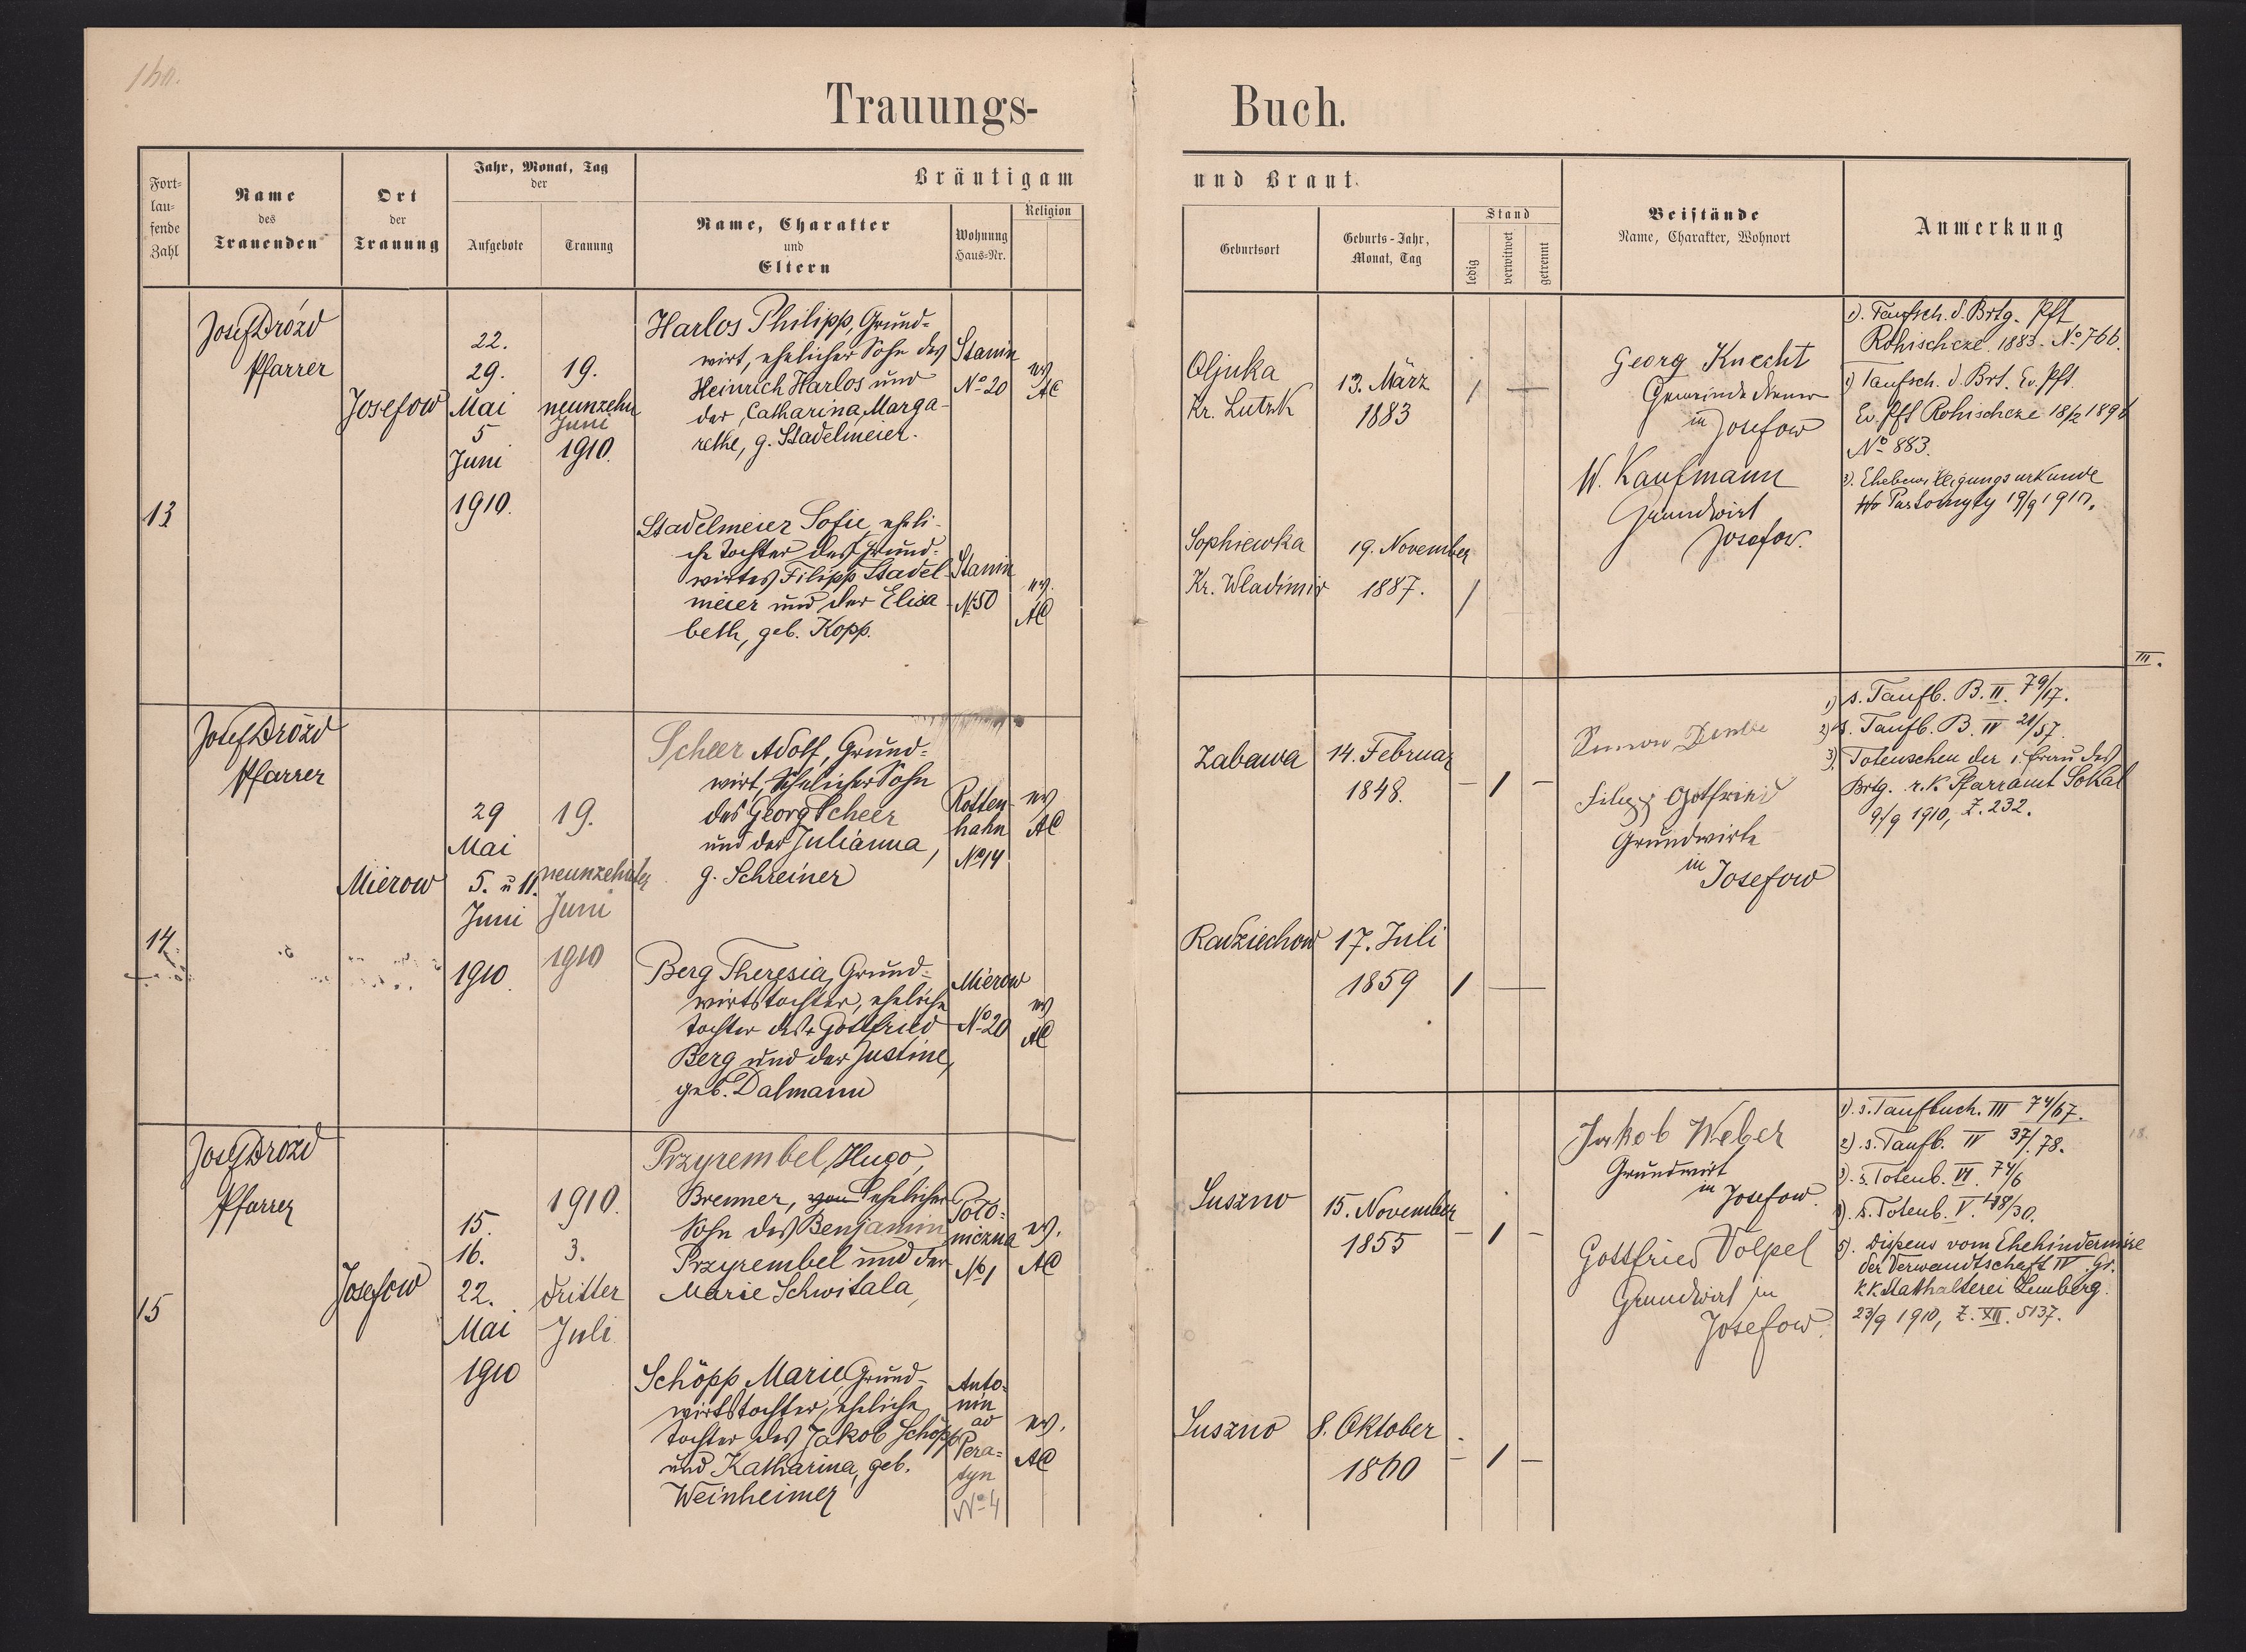 Trauungs-Buch.
Fort-
lau-
fende
Zahl
Name
des
Trauenden
Ort
der
Trauung
Jahr, Monat, Tag
der
Aufgebote
Trauung
Bräutigam
Name, Charakter
und
Eltern
Wohnung
Haus-Nr.
Religion
und Braut.
Geburtsort
Geburts-Jahr,
Monat, Tag
Stand
ledig
verwitwet
getrennt
Beistände
Name, Charakter, Wohnort
Anmerkung
13
Josef Drózd
Pfarrer
Josefow
22.
29.
Mai
5
Juni
1910.
19.
neunzehn
Juni
1910.
Harlos Philipp, Grund-
wirt, ehelicher Sohn des
Heinrich Harlos und
der Catharina Marga-
rethe, g. Stadelmeier.
Stanin
No 20
ev
AC
Oljuka
Kr. Lutzk
13. März
1883
Stadelmeier Sofie, eheli-
che Tochter des Grund-
wirtes Filipp Stadel-
meier und der Elisa-
beth, geb. Kopp.
Stanin
No 50
ev.
AC
Sophiewka
Kr. Wladimir
19. November
1887.
Georg Knecht
Gemeindediener
in Josefow
W. Kaufmann
Grundwirt
Josefow.
1). Taufsch. d. Brtg. Pft
Rohischcze. 1883. No 766.
Taufsch. d. Brt. Ev. Pft.
Ev. Pft Rohischcze 18/2 1898
No 883.
3). Ehebewilligungsurkunde
19/9 1910.
III.
14.
Josef Drózd
Pfarrer
Mierow
29
Mai
5. u 11.
Juni
1910.
19.
neunzehnter
Juni
1910
Scheer Adolf, Grund-
wirt, ehelicher Sohn
des Georg Scheer
und der Julianna,
g. Schreiner
Rotten-
hahn
No 14
ev
AC
Zabawa
14. Februar
1848.
Berg Theresia, Grund-
wirtstochter, eheliche
Tochter des Gottfried
Berg und der Justine,
geb. Dalmann
Mierow
No 20
ev
AC
Radziechow
17. Juli
1859
Filipp Gotfried
Grundwirte
in
Josefow
1) s. Taufb. B. II. 79/17.
2) s. Taufb. B. IV 21/57.
3) Totenschen der 1. Frau des
Brtg. r.k. Pfarramt Sokal
9/9 1910, Z. 232.
15
Josef Drozd
Pfarrer
Josefow
15.
16.
22.
Mai
1910
1910.
3.
dritter
Juli
Przyrembel, Hugo,
Brenner, ehelicher
Sohn des Benjamin
Przyrembel und der
Marie Schwitala,
Poto-
niczna
No 1
ev.
AC
Suszno
15. November
1855
Schöpp Marie Grund-
wirtstochter, eheliche
Tochter des Jakob Schöpp
und Katharina, geb.
Weinheimer
Anto-
nin
ad
Pera-
tyn
No 4
ev.
AC
Suszno
8. Oktober
1860
Jakob Weber
Grundwirt
in Josefow.
Gottfried Volpel
Grundwirt in
Josefow.
1). s. Taufbuch. III 74/67.
2). s. Taufb. IV 37/78.
3). s. Totenb. VI. 74/6
4). s. Totenb. V. 48/30.
5). Dispens vom Ehehindernisse
der Verwandtschaft IV. Gr.
k.k. Statthalterei Lemberg.
23/9 1910, Z. XII. 5137.